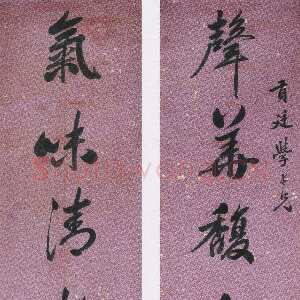 聲華馥
學兄
氣味清